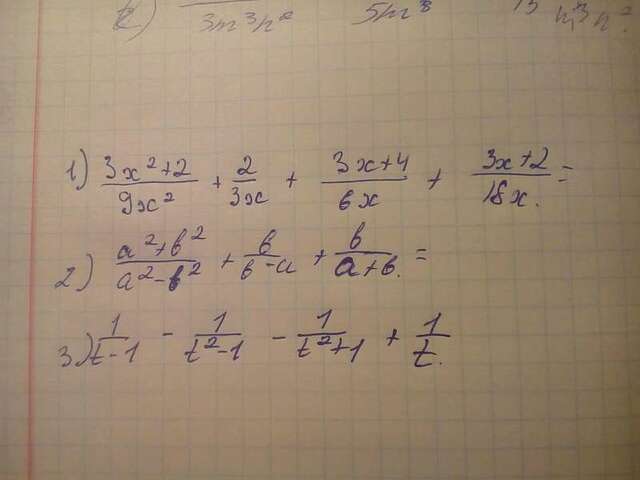 3m³n² 5m³ 15
1) (3x²+2)/(9x²) + 2/(3x) + (3x+4)/(6x) + (3x+2)/(18x) =
2) (a²+b²)/(a²-b²) + b/(b-a) + b/(a+b) =
3) 1/(t-1) - 1/(t²-1) - 1/(t²+1) + 1/t.